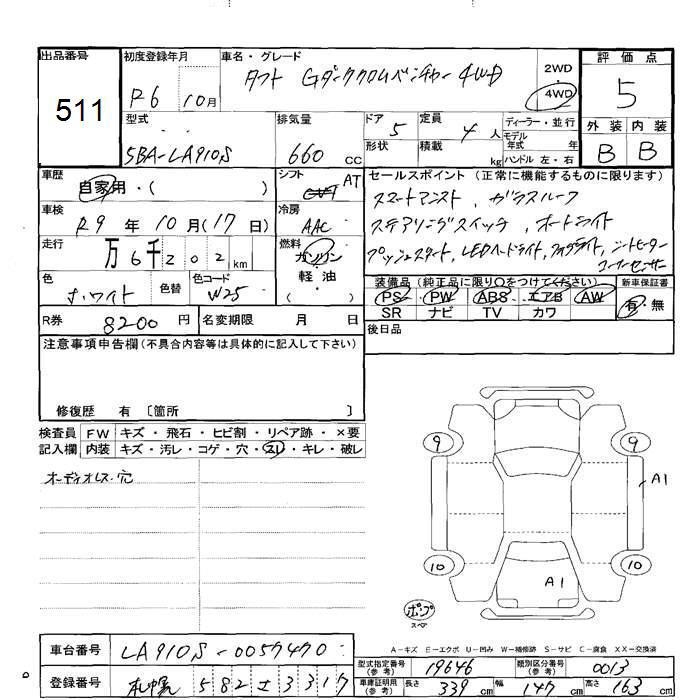 出品番号
511
初度登録年月
R6 10月
車名・グレード
タフト Gダーククロムベンチャー 4WD
2WD
4WD
評価点
5
型式
5BA-LA910S
排気量
660 cc
ドア 5
形状
定員 4人
積載 kg
ディーラー・並行
モデル年式 年
ハンドル 左・右
外装 内装
B B
車歴
自家用・( )
シフト AT
セールスポイント (正常に機能するものに限ります)
スマートアシスト、ガラスルーフ
ステアリングスイッチ、オートライト
プッシュスタート、LEDヘッドライト、フォグライト、シートヒーター
コーナーセンサー
車検
R9年 10月 (17日)
冷房
AAC
走行
万 6千202km
燃料
ガソリン
軽・油
( )
色
ホワイト
色替
色コード
W25
装備品 (純正品に限り○をつけてください)
PS PW ABS エアB AW
SR ナビ TV カワ
新車保証書
有・無
R券 8200円
名変期限 月 日
後日品
注意事項申告欄 (不具合内容等は具体的に記入して下さい)
修復歴 有 〔箇所 〕
検査員記入欄
FW キズ・飛石・ヒビ割・リペア跡・×要
内装 キズ・汚レ・コゲ・穴・スレ・キレ・破レ
オーディオレス穴
9 9
A1
10 10
A1
ポンプ
スペア
A-キズ E-エクボ U-凹み W-補修跡 S-サビ C-腐食 XX-交換済
車台番号 LA910S-0057470
登録番号 札幌 582 せ 3317
型式指定番号(参考) 19646
類別区分番号(参考) 0013
車庫証明用(参考) 長さ 339cm 幅 147cm 高さ 163cm